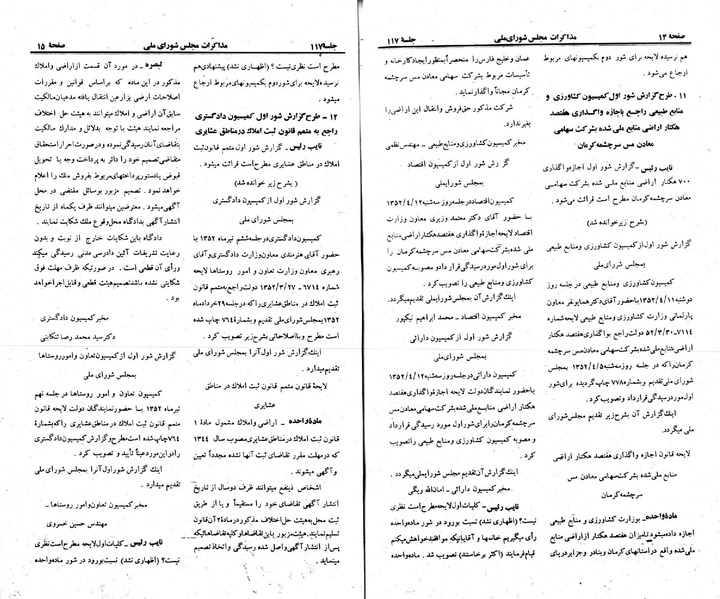 صفحه ۱۴
مذاکرات مجلس شورای ملی
جلسه ۱۱۷
هم نرسیده لایحه برای شور دوم بکمیسیونهای مربوط
ارجاع می‌شود.
۱۱ - طرح گزارش شور اول کمیسیون کشاورزی و
منابع طبیعی راجع باجازه واگذاری هفتصد
هکتار اراضی منابع ملی شده بشرکت سهامی
معادن مس سرچشمه کرمان
نایب رئیس - گزارش شور اول اجازه واگذاری
۷۰۰ هکتار اراضی منابع ملی شده بشرکت سهامی
معادن مس سرچشمه کرمان مطرح است قرائت می‌شود.
(شرح زیر خوانده شد)
گزارش شور اول از کمیسیون کشاورزی و منابع طبیعی
بمجلس شورای ملی
کمیسیون کشاورزی و منابع طبیعی در جلسه روز
دوشنبه ۱۳۵۲/۴/۱۱ با حضور آقای دکتر همایونفر معاون
پارلمانی وزارت کشاورزی و منابع طبیعی لایحه شماره
۷۱۱۴-۵۲/۳/۳۰ دولت راجع بواگذاری هفتصد هکتار
اراضی منابع ملی شده بشرکت سهامی معادن مس سرچشمه
کرمان را که در جلسه روز سه‌شنبه ۱۳۵۲/۴/۵ تقدیم
مجلس شورای ملی و بشماره ۷۷۸ چاپ گردیده برای شور
اول مورد رسیدگی قرارداد و تصویب کرد.
اینک گزارش آن بشرح زیر تقدیم مجلس شورای
ملی میگردد.
لایحه قانون اجازه واگذاری هفتصد هکتار اراضی
منابع ملی شده بشرکت سهامی معادن مس
سرچشمه کرمان
ماده واحده - بوزارت کشاورزی و منابع طبیعی
اجازه داده میشود تا میزان هفتصد هکتار از اراضی منابع
ملی شده واقع در استانهای کرمان و بنادر و جزایر دریای
عمان و خلیج فارس را منحصراً بمنظور ایجاد کارخانه و
تأسیسات مربوط بشرکت سهامی معادن مس سرچشمه
کرمان مجاناً واگذار نماید.
شرکت مذکور حق فروش و انتقال این اراضی را
بغیر ندارد.
مخبر کمیسیون کشاورزی و منابع طبیعی - مهندس نظمی
گزارش شور اول از کمیسیون اقتصاد
بمجلس شورای ملی
کمیسیون اقتصاد در جلسه روز سه‌شنبه ۱۳۵۲/۴/۱۲
با حضور آقای دکتر محمد وزیری معاون وزارت
اقتصاد لایحه اجازه واگذاری هفتصد هکتار اراضی منابع
ملی شده بشرکت سهامی معادن مس سرچشمه کرمان را
برای شور اول مورد رسیدگی قرارداد و مصوبه کمیسیون
کشاورزی و منابع طبیعی را تصویب کرد.
اینک گزارش آن بمجلس شورای ملی تقدیم میگردد.
مخبر کمیسیون اقتصاد - محمد ابراهیم نیکپور
گزارش شور اول از کمیسیون دارائی
بمجلس شورای ملی
کمیسیون دارائی در جلسه روز سه‌شنبه ۱۳۵۲/۴/۱۲
با حضور نمایندگان دولت لایحه اجازه واگذاری هفتصد
هکتار اراضی منابع ملی شده بشرکت سهامی معادن مس
سرچشمه کرمان را برای شور اول مورد رسیدگی قرارداد
و مصوبه کمیسیون کشاورزی و منابع طبیعی را تصویب
کرد.
اینک گزارش آن تقدیم مجلس شورای ملی میگردد.
مخبر کمیسیون دارائی - امان‌الله ریگی
نایب رئیس - کلیات لایحه مطرح است نظری
نیست؟ (اظهاری نشد) نسبت بورود در شور ماده واحده
رأی میگیریم خانمها و آقایانیکه موافقند خواهش میکنم
قیام فرمایند (اکثر برخاستند) تصویب شد. ماده واحده
جلسه ۱۱۷
مذاکرات مجلس شورای ملی
صفحه ۱۵
مطرح است نظری نیست؟ (اظهاری نشد) پیشنهادی هم
نرسیده لایحه برای شور دوم بکمیسیونهای مربوط ارجاع
میشود.
۱۲ - طرح گزارش شور اول کمیسیون دادگستری
راجع به متمم قانون ثبت املاک در مناطق عشایری
نایب رئیس - گزارش شور اول متمم قانون ثبت
املاک در مناطق عشایری مطرح است قرائت میشود.
(بشرح زیر خوانده شد)
گزارش شور اول از کمیسیون دادگستری
بمجلس شورای ملی
کمیسیون دادگستری در جلسه ششم تیر ماه ۱۳۵۲ با
حضور آقای هنرمندی معاون وزارت دادگستری و آقای
رهبری معاون وزارت تعاون و امور روستاها لایحه
شماره ۶۷۱۴ - ۱۳۵۲/۳/۲۷ دولت راجع به متمم قانون
ثبت املاک در مناطق عشایری را که در جلسه ۲۹ خرداد ماه
۱۳۵۲ بمجلس شورای ملی تقدیم و بشماره ۷۶۴ چاپ شده
مطرح و با اصلاحاتی بشرح زیر تصویب کرد.
اینک گزارش شور اول آنرا بمجلس شورای ملی
تقدیم میدارد.
لایحه قانون متمم قانون ثبت املاک در مناطق
عشایری
ماده واحده - اراضی و املاک مشمول ماده ۱
قانون ثبت املاک در مناطق عشایری مصوب سال ۱۳۴۴
که در مهلت مقرر تقاضای ثبت آنها نشده مجدداً تعیین
و آگهی میشوند.
اشخاص ذینفع میتوانند ظرف دو سال از تاریخ
انتشار آگهی تقاضای خود را مستقیماً و یا از طریق
ثبت محل به هیئت حل اختلاف مذکور در ماده ۲ آن قانون
تسلیم نمایند. هیئت مزبور باین تقاضاها و کلیه تقاضاهائیکه
پس از انتشار آگهی واصل شده رسیدگی و اتخاذ تصمیم
مینماید.
تبصره - در مورد آن قسمت از اراضی و املاک
مذکور در این ماده که براساس قوانین و مقررات
اصلاحات ارضی بزارعین انتقال یافته مدعیان مالکیت
سابق آن اراضی و املاک میتوانند به هیئت حل اختلاف
مراجعه نمایند هیئت با توجه بدلائل و مدارک مالکیت
بتقاضای آنان رسیدگی نموده و در صورت احراز استحقاق
متقاضی تصمیم خود را دائر به پرداخت وجه یا تحویل
قبوض یا دستور پرداختهای مربوط بفروش ملک را اعلام
خواهد نمود. تصمیم مزبور بوسائل مقتضی در محل
آگهی میشود. معترضین میتوانند ظرف یکماه از تاریخ
انتشار آگهی بدادگاه محل وقوع ملک شکایت نمایند.
دادگاه باین شکایات خارج از نوبت و بدون
رعایت تشریفات آئین دادرسی مدنی رسیدگی میکند
و رأی آن قطعی است. در صورتیکه ظرف مهلت فوق
شکایتی نشده باشد تصمیم هیئت قطعی و قابل اجرا خواهد
بود.
مخبر کمیسیون دادگستری
دکتر سید محمد رضا تنکابنی
گزارش شور اول از کمیسیون تعاون و امور روستاها
بمجلس شورای ملی
کمیسیون تعاون و امور روستاها در جلسه نهم
تیر ماه ۱۳۵۲ با حضور نمایندگان دولت لایحه متمم
قانون ثبت املاک در مناطق عشایری را که بشماره
۷۶۴ چاپ شده است مطرح و گزارش کمیسیون دادگستری
را در این مورد عیناً تأیید و تصویب کرد.
اینک گزارش شور اول آنرا بمجلس شورای ملی
تقدیم میدارد.
مخبر کمیسیون تعاون و امور روستاها -
مهندس حسین خسروی
نایب رئیس - کلیات اول لایحه مطرح است نظری
نیست؟ (اظهاری نشد) نسبت بورود در شور ماده واحده